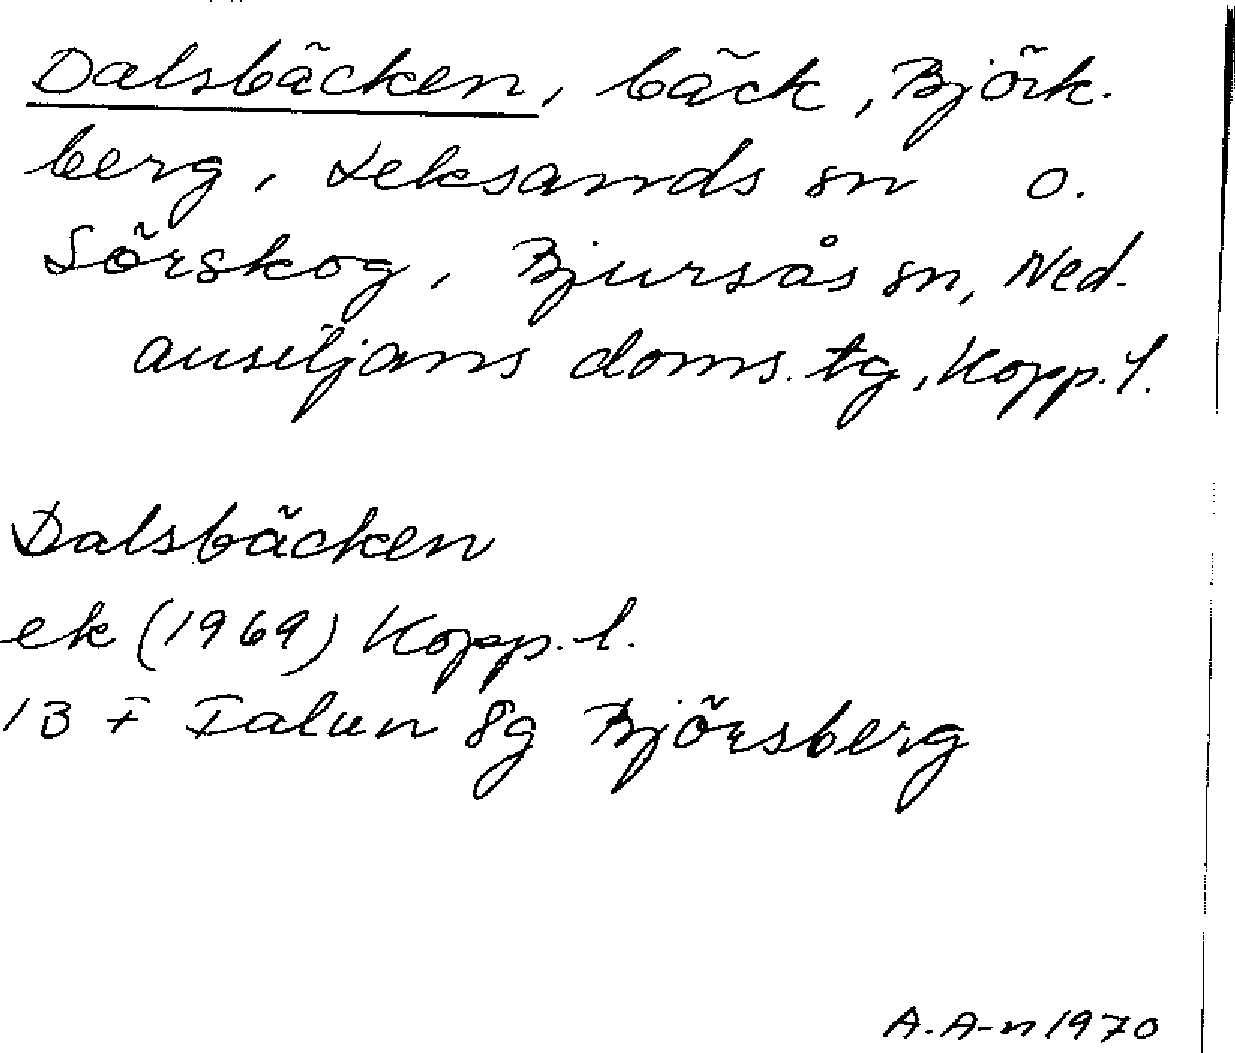 Dalsbäcken, bäck, Björk-
berg, Leksands sn o.
Sörskog, Bjursås sn, Ned-
ansiljans doms. tg, Kopp. l.
Dalsbäcken
ek (1969) Kopp. l.
13 F Falun 8g Björsberg
A. A-n 1970